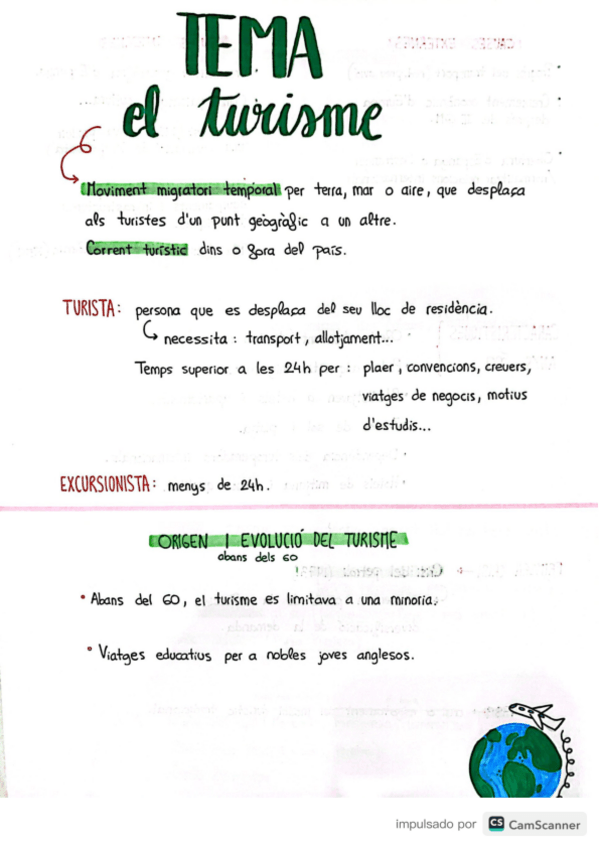 TEMA
el turisme
Moviment migratori temporal per terra, mar o aire, que desplaça
als turistes d'un punt geogràfic a un altre.
Corrent turístic dins o fora del país.
TURISTA: persona que es desplaça del seu lloc de residència.
necessita: transport, allotjament...
Temps superior a les 24h per: plaer, convencions, creuers,
viatges de negocis, motius
d'estudis...
EXCURSIONISTA: menys de 24h.
ORIGEN I EVOLUCIÓ DEL TURISME
abans dels 60
• Abans del 60, el turisme es limitava a una minoria.
• Viatges educatius per a nobles joves anglesos.
impulsado por CS CamScanner